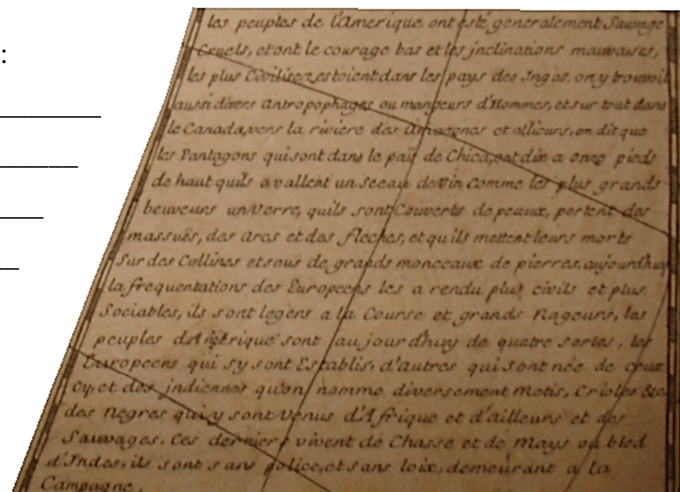 :
les peuples de l'Amerique ont esté generalement Sauvage
Cruels, et ont le courage bas et les jnclinations mauvaises,
les plus Civilisez estoient dans les pays des Ingas, on y trouvoit
aussi divers Antropophages ou mangeurs d'Hommes, et sur tout dans
le Canada, vers la riviere des Amazones et allieurs, on dit que
les Pantagons qui sont dans le païs de Chica, ont dix a onze pieds
de haut quils avallent un Seeau de vin Comme les plus grands
beuveurs un Verre, quils sont Couverts de peaux, portent des
massuës, des Arcs et des fleches, et qu ils mettent leurs morts
Sur des Collines et sous de grands monceaux de pierres, aujourdhuy
la frequentations des Europeens les a rendu plus civils et plus
Sociables, ils sont legers a la Course et grands Nageurs, les
peuples d'Amerique sont au jour d'huy de quatre sortes, les
Europeens qui sy sont Establis, d'autres qui sont née de ceux
cy, et des jndiennes qu'on nomme diversement Metis, Crioles &c
des Negres qui y sont Venus d'Afrique et d'ailleurs et des
Sauvages. Ces derniers vivent de Chasse et de Mays ou bled
d'Indes, ils sont sans police, et sans loix, demeurant a la
Campagne.